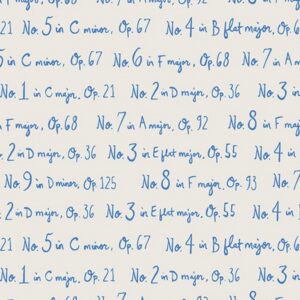 F major, Op. 68 No. 7 in A major, Op.
21 No. 5 in C minor, Op. 67 No. 4 in B flat major, Op. 6
5 in C minor, Op. 67 No. 6 in F major, Op. 68 No. 7 in A
No. 1 in C major, Op. 21 No. 2 in D major, Op. 36 No. 3 in
in F major, Op. 68 No. 7 in A major, Op. 92 No. 8 in F m
. 2 in D major, Op. 36 No. 3 in E flat major, Op. 55 No. 4 in
No. 9 in D minor, Op. 125 No. 8 in F major, Op. 93 No. 7
. 2 in D major, Op. 36 No. 3 in E flat major, Op. 55 No. 4 in
21 No. 5 in C minor, Op. 67 No. 4 in B flat major, Op.
No. 1 in C major, Op. 21 No. 2 in D major, Op. 36 No. 3 in